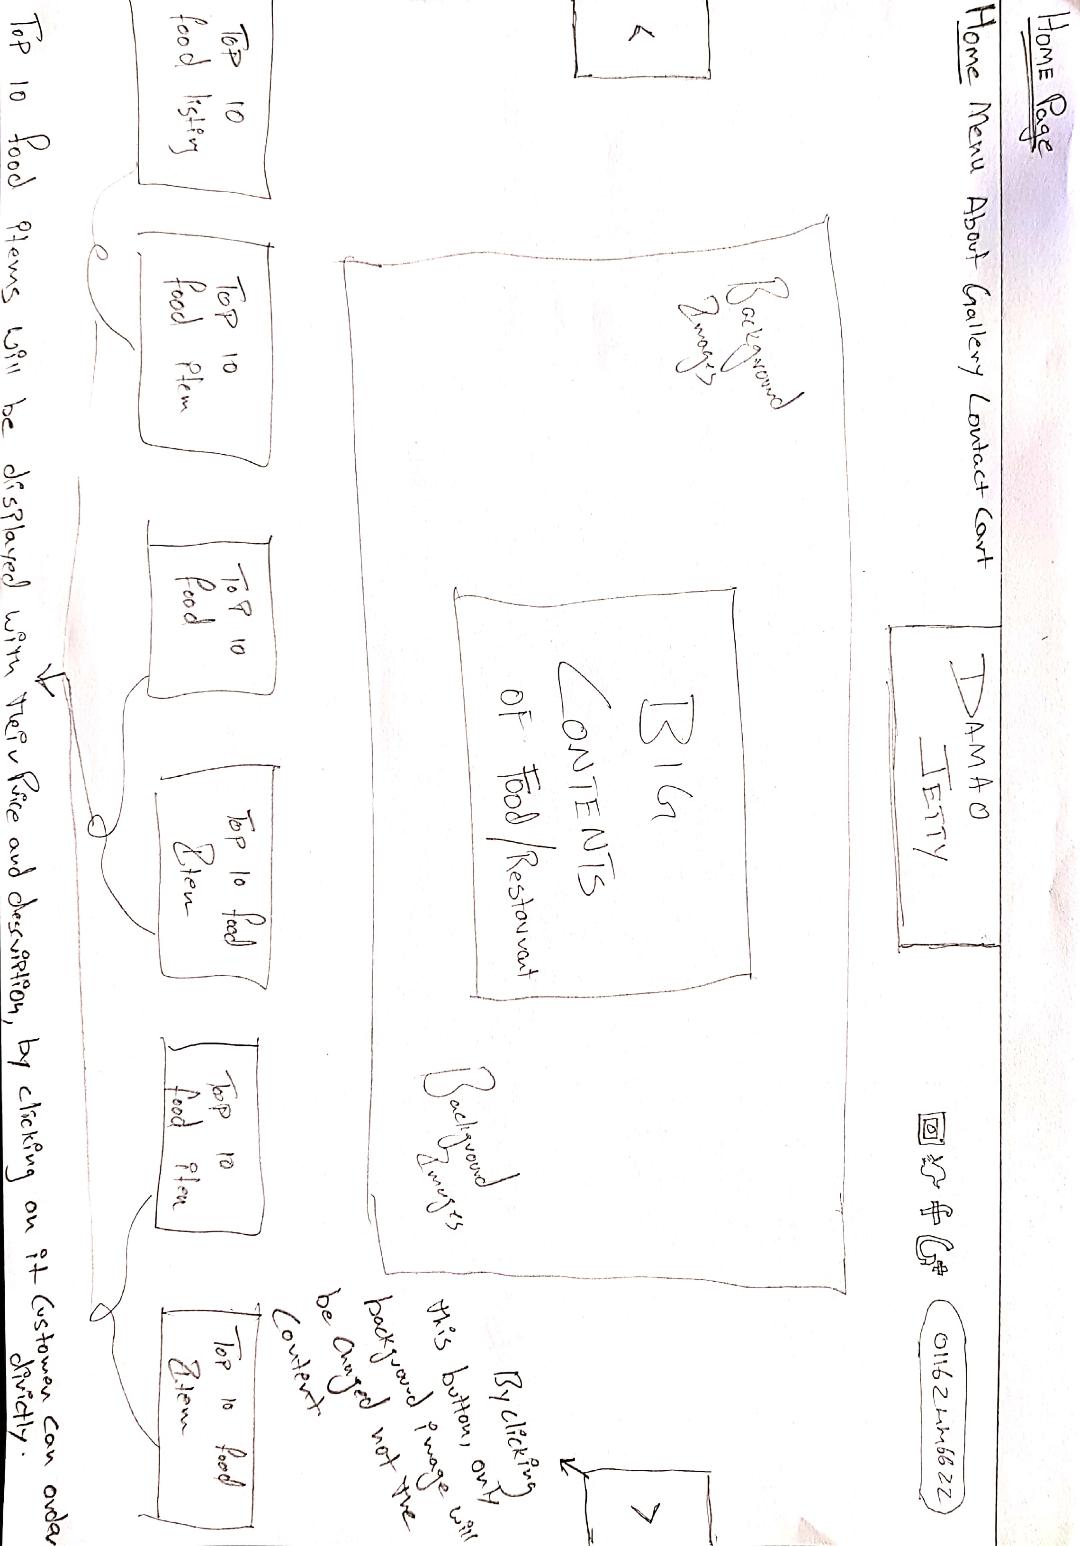 HOME Page
Home Menu About Gallery Contact Cart
DAMAO
JETTY
Background
Images
<
BIG
CONTENTS
OF Food/Restaurant
>
Background
Images
By clicking
this button, only
background image will
be changed not the
Content
TOP 10
food listing
TOP 10
food item
TOP 10
food
Top 10 food
Item
Top 10
food item
Top 10 food
Item
Top 10 food items will be displayed with their Price and description, by clicking on it Customer can order
dirictly.